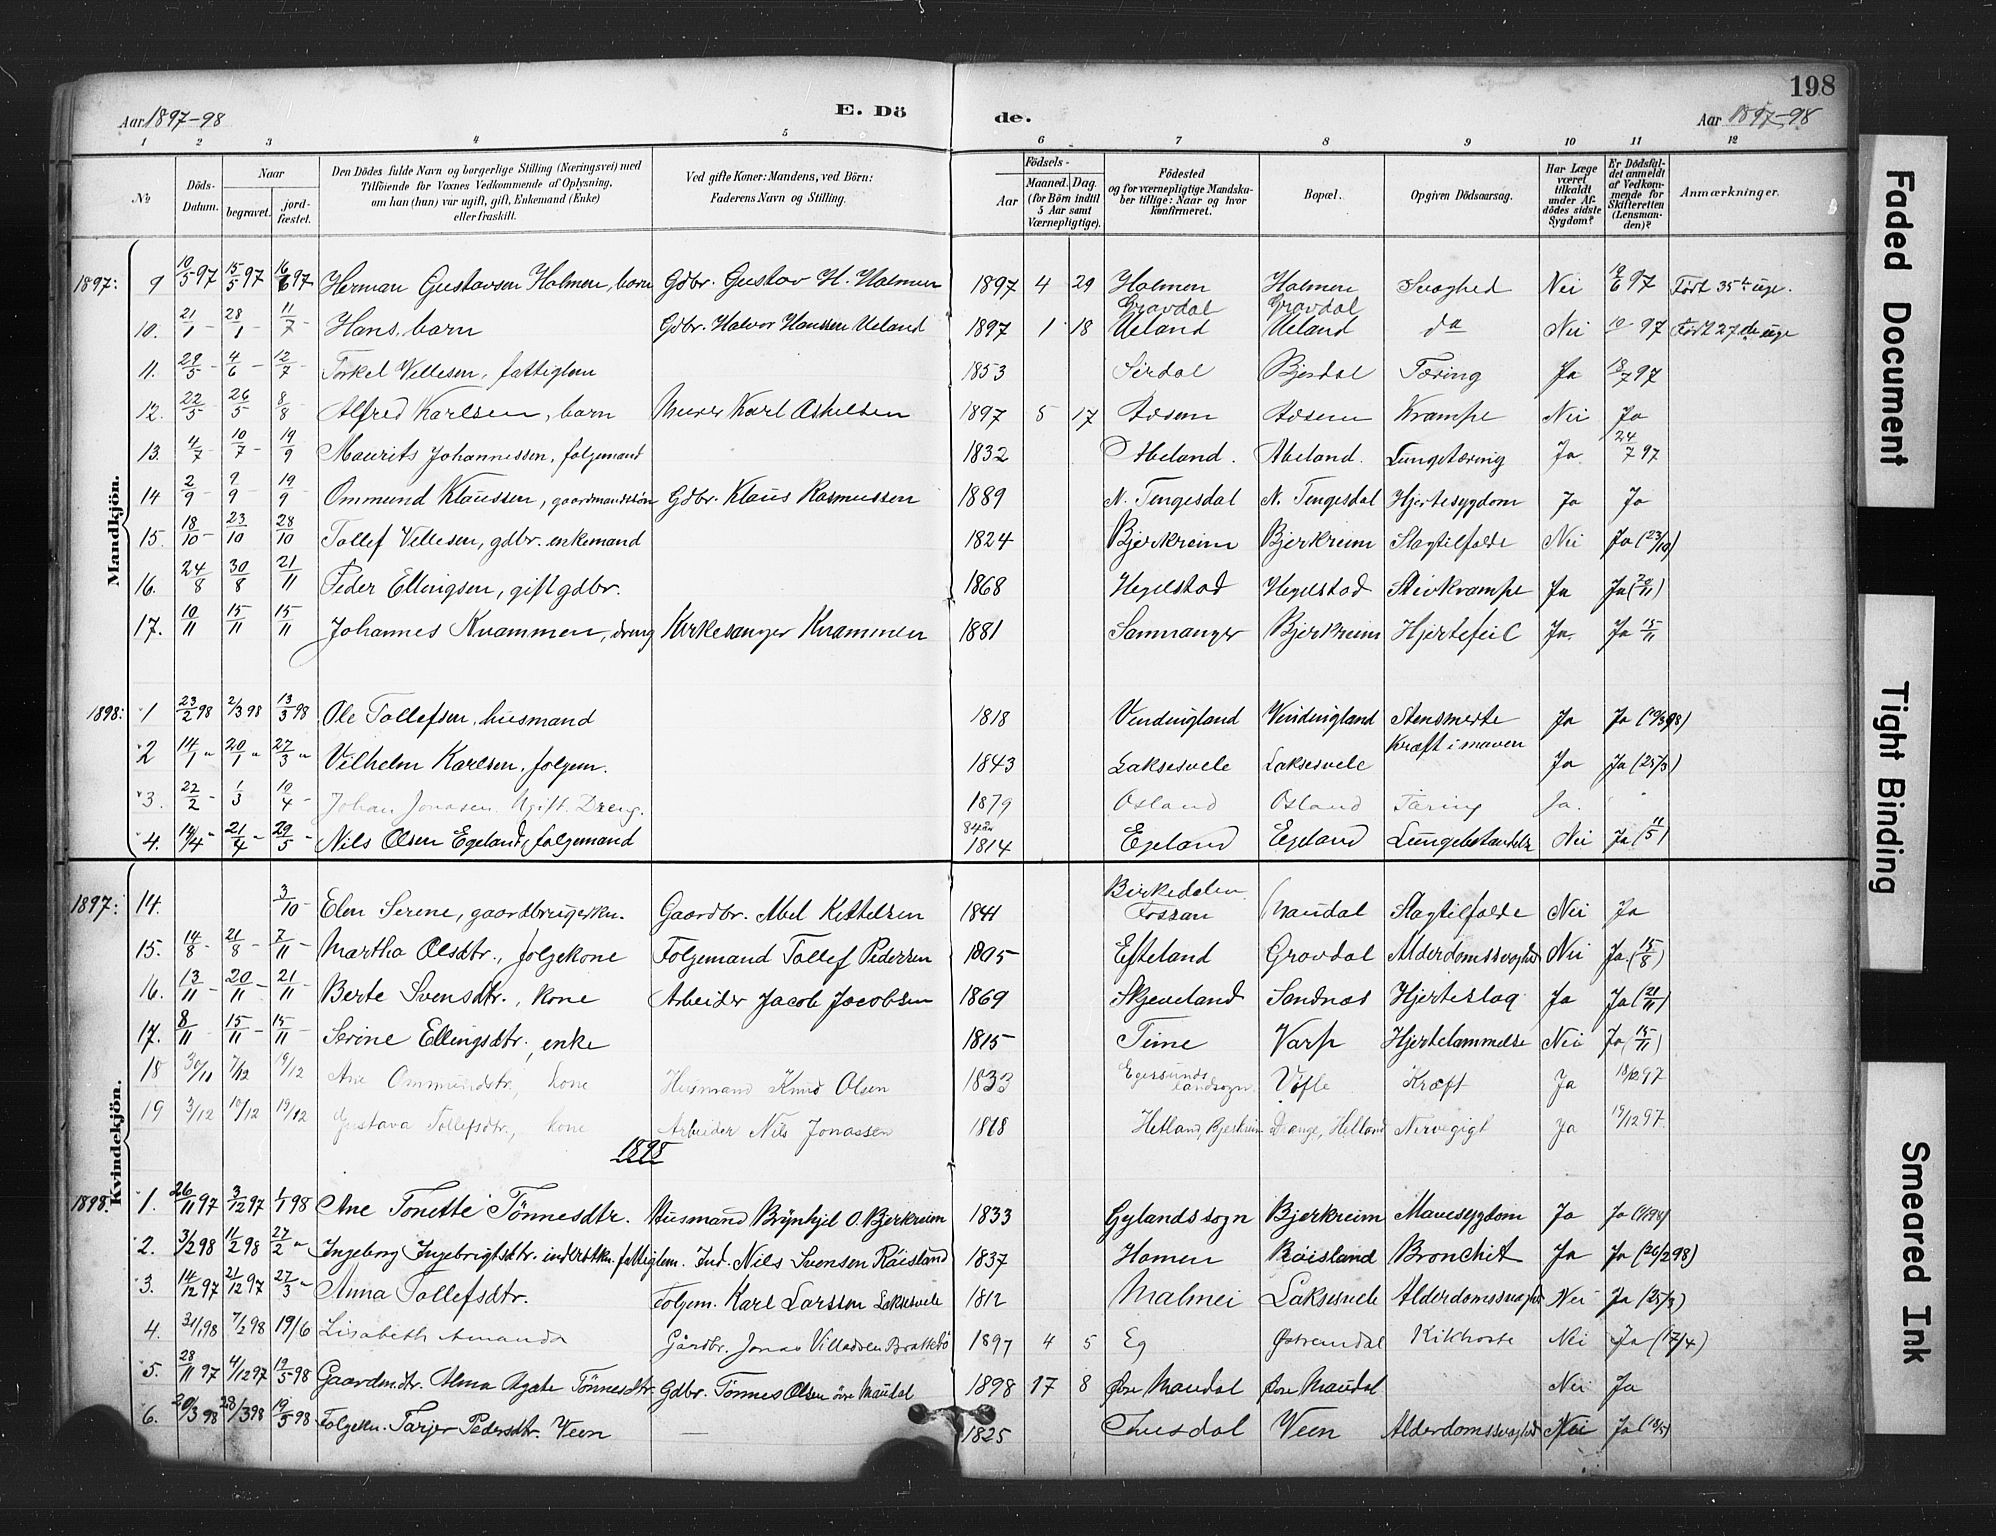 198
Aar 1897-98 E. Dö de. Aar 1897-98
1 2 3 4 5 6 7 8 9 10 11 12
No. Döds-Datum. Naar begravet. jord-fæstet. Den Dödes fulde Navn og borgerlige Stilling (Næringsvei) med Tilföiende for Voxnes Vedkommende af Oplysning, om han (hun) var ugift, gift, Enkemand (Enke) eller fraskilt. Ved gifte Koner: Mandens, ved Börn: Faderens Navn og Stilling. Födsels- Aar Maaned. Dag. (for Börn indtil 5 Aar samt Værnepligtige). Födested og for værnepligtige Mandskaber tillige: Naar og hvor konfirmeret. Bopæl. Opgiven Dödsaarsag. Har Læge været tilkaldt under Afdödes sidste Sygdom? Er Dödsfaldet anmeldt af Vedkommende for Skifteretten (Lensmanden)? Anmærkninger.
Mandkjön.
1897: 9 10/5 97 15/5 97 16/6 97 Herman Gustavsen Holmen, barn Gdbr. Gustav H. Holmen 1897 4 29 Holmen Gravdal Holmen Gravdal Svaghed Nei 97 Født 35te uge.
10. 21/1 - 28/1 - 11/7 - Hans, barn Gdbr. Halvor Hanssen Ueland 1897 1 18 Ueland Ueland da Nei 97 Født 27de uge
11. 29/5 - 4/6 - 12/7 - Torkel Villesen, fattiglem 1853 Sirdal Bjordal Tæring Ja 18/7 97
12. 22/5 - 26/5 8/8 Alfred Karlsen, barn Murer Karl Askelsen 1897 5 17 Krampe Nei Ja
13. 4/7 10/7 - 19/9 Maurits Johannessen, folgemand 1832 Abeland. Abeland. Lungetæring Ja. 24/7 97
14 2/9 - 9/9 - 19/9 - Ommund Klaussen, gaardmandssön Gdbr. Klaus Rasmussen 1889 N. Tengesdal N. Tengesdal Hjertesygdom Ja Ja
15. 18/10 - 23/10 28/10 Tollef Villesen, gdbr. enkemand 1824 Bjerkreim Bjerkreim Slagtilfælde Nei Ja (23/10)
16. 24/8 30/8 21/11 Peder Ellingsen, gift gdbr. 1868 Hegelstad Hegelstad Stivkrampe Ja Ja (20/11)
17. 10/11 15/11 15/11 Johannes Kvammen, dreng Kirkesanger Kvammen 1881 Samnanger Bjerkreim Hjertefeil Ja. Ja 15/11
1898: 1 23/2 98 2/3 98 13/3 98 Ole Tollefsen, husmand 1818 Vindingland Vindingland Stensmerte Ja Ja
2 14/1 " 20/1 " 27/3 " Vilhelm Karlsen, folgem. 1843 Laksesvele Laksesvele Kræft i maven Ja Ja (25/3)
3. 22/2 - 1/3 10/4 - Johan Jonasen. Ugift. Dreng. 1879 Osland Osland Tæring Ja.
4. 14/4 - 21/4 - 29/5 - Nils Olsen Egeland, folgemand 84 aar 1814 Egeland Egeland Nei Ja (11/5)
Kvindekjön.
1897: 14. 3/10 - Elen Serene, gaardbrugerkn. Gaardbr. Abel Kittelsen 1841 Birkedalen Fossan Maudal Slagtilfælde Nei Ja
15. 14/8 - 21/8 - 7/11 - Martha Olsdtr., folgekone Folgemand Tollef Pedersen 1805 Efteland Gravdal Alderdomssvaghed Nei Ja (15/8)
16. 13/11 - 20/11 - 21/11 - Berte Svensdtr., kone Arbeider Jacob Jacobsen 1869 Skjeveland Sandnæs Hjerteslag Ja Ja (21/11)
17. 8/11 - 15/11 - 15/11 - Serine Ellingsdtr., enke 1815 Time Varp Hjertelammelse Nei Ja (15/11)
18 30/11 7/12 19/12 Ane Ommundsdtr., kone Husmand Knud Olsen 1833 Egersunds landsogn Vofle Kræft Ja 18/12 97
19 3/12 10/12 19/12 Gustava Tollefsdtr., kone Arbeider Nils Jonassen 1818 Hetland, Bjerkreim Drange, Helland Nervegigt Ja 19/12 97
1898
1898. 1. 26/11 97 3/12 97 1/1 98 Ane Tonette Tönnesdtr. Husmand Brynhjel O. Bjerkreim 1833 Gylands sogn Bjerkreim Mavesygdom Ja Ja
2. 3/2 98 11/2 98 27/2 " Ingeborg Ingebrigtsdtr. fattiglem. Ind. Nils Svensen Röisland 1837 Homen Röisland Bronchit Ja Ja (26/2 98)
3. 14/12 97 21/12 97 27/3 " Anna Tollefsdtr. Folgem. Karl Larssen Laksesvele 1812 Malmei Laksesvele Alderdomssvaghed Nei Ja (25/3)
4. 31/1 98 7/2 98 19/6 Lisabeth Amanda Gårdbr. Jonas Villadsen Brattebö 1897 4 5 Eg Østremdal Kikhoste Nei Ja (17/4)
5. 28/11 97 4/12 97 19/5 98 Gaardm.dtr. Alma Agate Tönnesdtr. Gdbr. Tönnes Olsen övre Maudal 1898 17 8 Øvre Maudal Øvre Maudal Nei Ja
6. 20/3 98 28/3 98 19/5 98 Folgekn. Tarjer Pedersdtr. Veen — 1825 Veen Alderdomssvaghed Nei Ja
Faded Document
Tight Binding
Smeared Ink